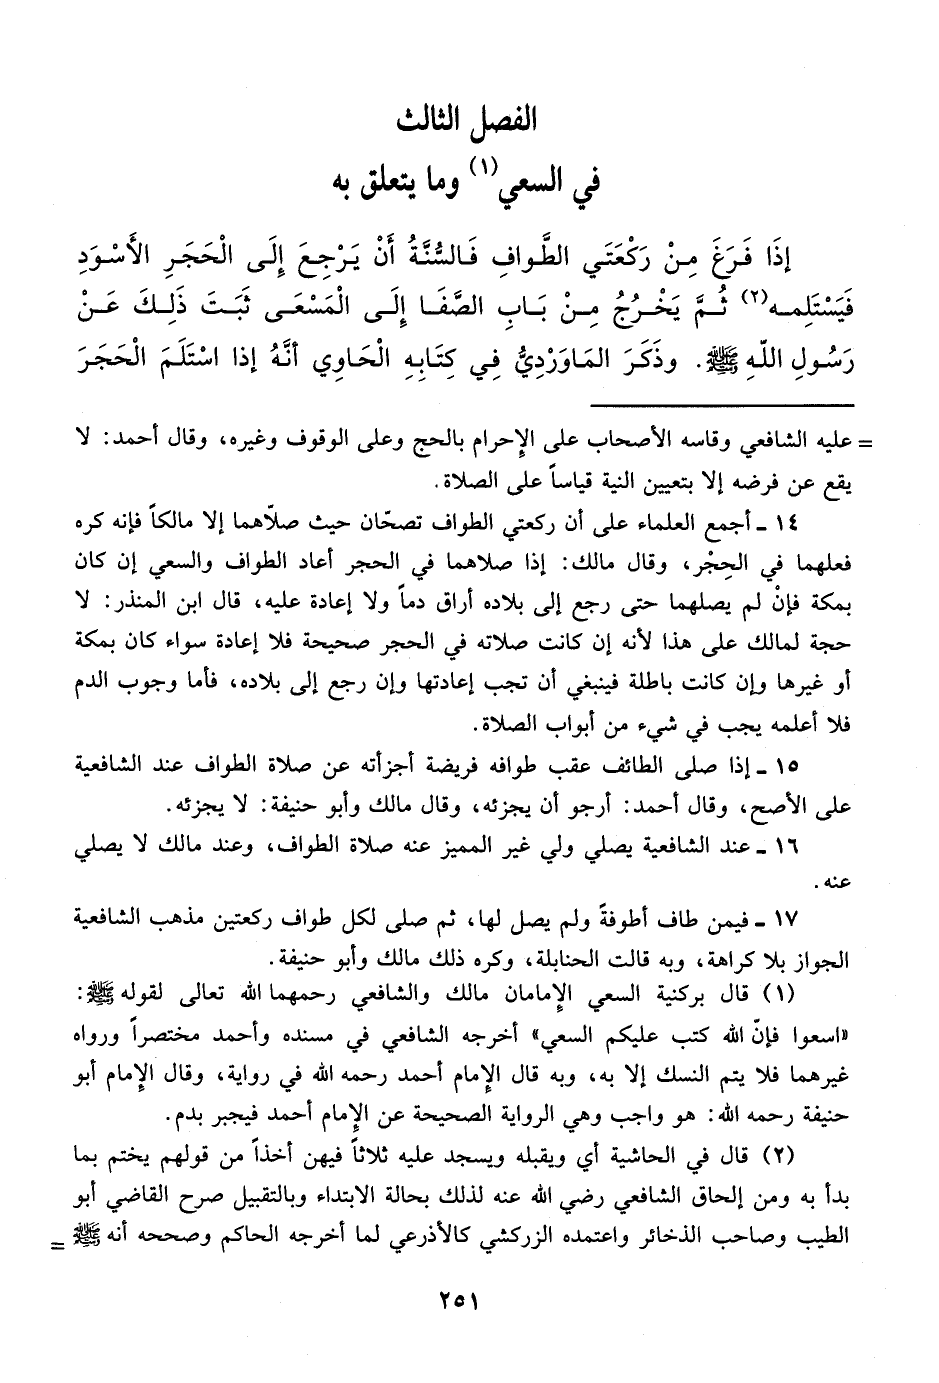 الفصل الثالث
في السعي(١) وما يتعلق به
إذَا فَرَغَ مِنْ رَكْعَتَي الطَّوافِ فَالسُّنَّةُ أَنْ يَرْجِعَ إِلَى الْحَجَرِ الأَسْوَدِ
فَيَسْتَلِمه(٢) ثُمَّ يَخْرُجُ مِنْ بَابِ الصَّفَا إِلَى الْمَسْعَى ثَبَتَ ذَلِكَ عَنْ
رَسُولِ اللّهِ ﷺ. وذَكَرَ المَاوَرْدِيُّ فِي كِتَابِهِ الْحَاوِي أنَّهُ إذا اسْتَلَمَ الْحَجَرَ
= عليه الشافعي وقاسه الأصحاب على الإحرام بالحج وعلى الوقوف وغيره، وقال أحمد: لا
يقع عن فرضه إلا بتعيين النية قياساً على الصلاة.
١٤ ـ أجمع العلماء على أن ركعتي الطواف تصحّان حيث صلّاهما إلا مالكاً فإنه كره
فعلهما في الحِجْر، وقال مالك: إذا صلاهما في الحجر أعاد الطواف والسعي إن كان
بمكة فإنْ لم يصلهما حتى رجع إلى بلاده أراق دماً ولا إعادة عليه، قال ابن المنذر: لا
حجة لمالك على هذا لأنه إن كانت صلاته في الحجر صحيحة فلا إعادة سواء كان بمكة
أو غيرها وإن كانت باطلة فينبغي أن تجب إعادتها وإن رجع إلى بلاده، فأما وجوب الدم
فلا أعلمه يجب في شيء من أبواب الصلاة.
١٥ ـ إذا صلى الطائف عقب طوافه فريضة أجزأته عن صلاة الطواف عند الشافعية
على الأصح، وقال أحمد: أرجو أن يجزئه، وقال مالك وأبو حنيفة: لا يجزئه.
١٦ ـ عند الشافعية يصلي ولي غير المميز عنه صلاة الطواف، وعند مالك لا يصلي
عنه.
١٧ ـ فيمن طاف أطوفةً ولم يصل لها، ثم صلى لكل طواف ركعتين مذهب الشافعية
الجواز بلا كراهة، وبه قالت الحنابلة، وكره ذلك مالك وأبو حنيفة.
(١) قال بركنية السعي الإمامان مالك والشافعي رحمهما الله تعالى لقوله ﷺ:
«اسعوا فإنّ الله كتب عليكم السعي» أخرجه الشافعي في مسنده وأحمد مختصراً ورواه
غيرهما فلا يتم النسك إلا به، وبه قال الإمام أحمد رحمه الله في رواية، وقال الإمام أبو
حنيفة رحمه الله: هو واجب وهي الرواية الصحيحة عن الإمام أحمد فيجبر بدم.
(٢) قال في الحاشية أي ويقبله ويسجد عليه ثلاثاً فيهن أخذاً من قولهم يختم بما
بدأ به ومن إلحاق الشافعي رضي الله عنه لذلك بحالة الابتداء وبالتقبيل صرح القاضي أبو
الطيب وصاحب الذخائر واعتمده الزركشي كالأذرعي لما أخرجه الحاكم وصححه أنه ﷺ =
٢٥١